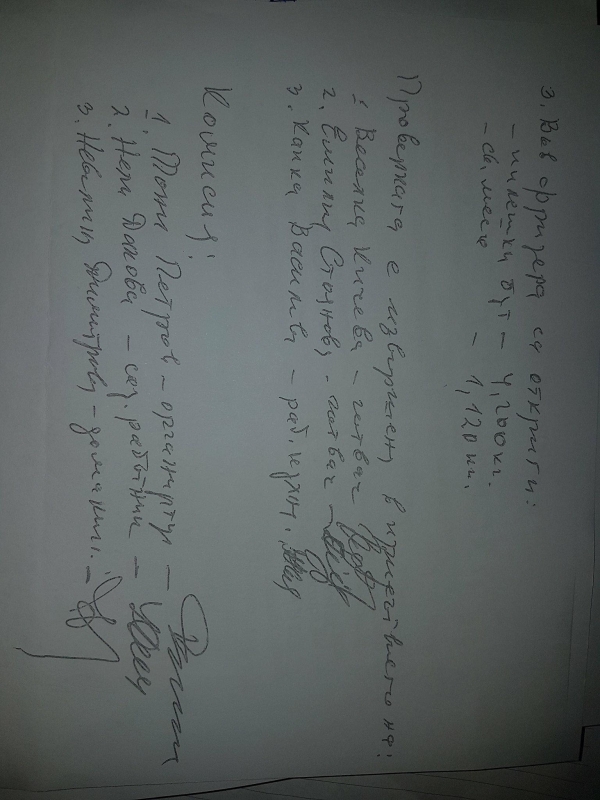 3. Във фризера са открити:
- пилешки бут - 4,200 кг.
- св. месо - 1,120 кг.
Проверката е извършена в присъствието на:
1. Веселка Кичева - готвач
2. Емилия Стоянова - готвач -
3. Канка Василева - раб. кухн.
Комисия:
1. Тотю Петров - организатор -
2. Нели Данова - соц. работник -
3. Невяна Димитрова - домакин. -